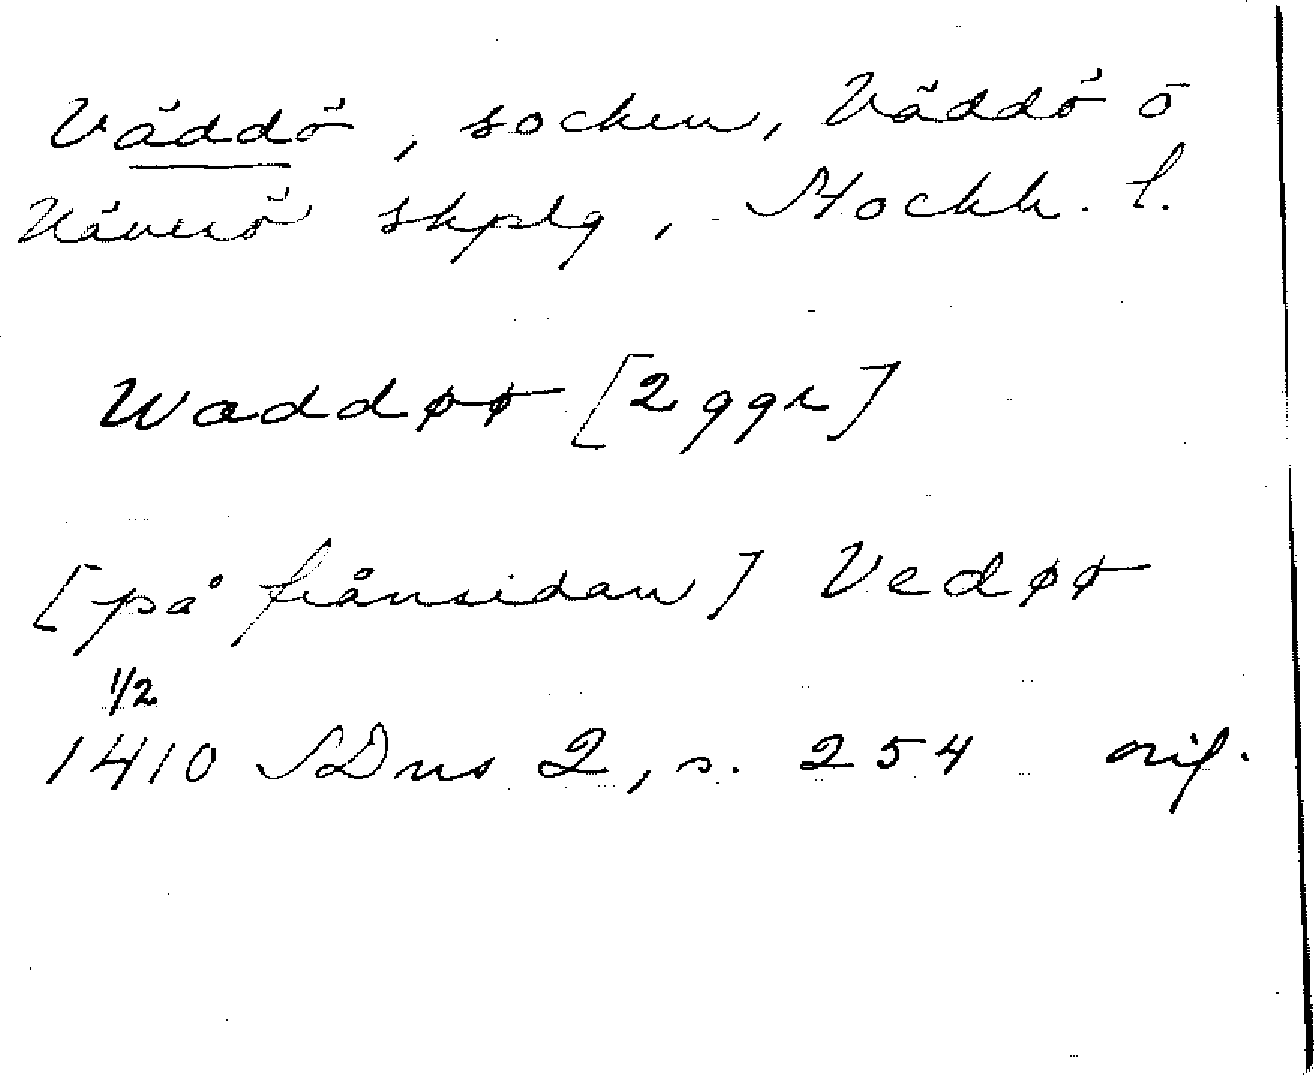 Väddö, socken, Väddö o
Häverö skplg, Stockh. l.
Waddøø [2 ggr]
[på frånsidan] Vedøø
1/2
1410 SDns 2, s. 254 orig.